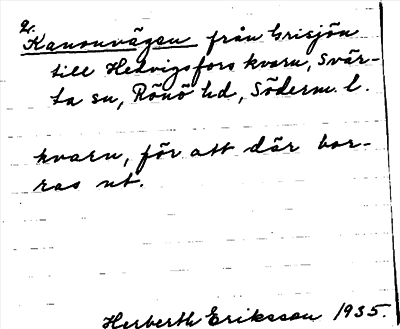 2.
Kanonvägen från Grisjön
till Hedvigsfors kvarn, Svär-
ta sn, Rönö hd, Söderm. l.
kvarn, för att där bor-
ras ut.
Herberth Eriksson 1935.